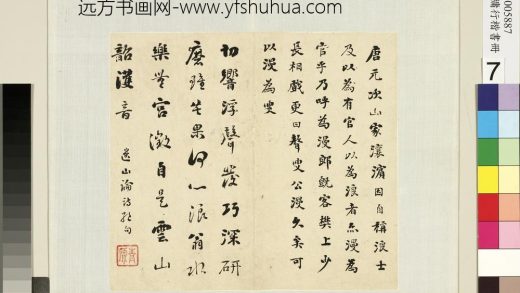 远方书画网-www.yfshuhua.com
唐元次山家瀼濱因自稱浪士
及以為有官人以為浪者亦漫為
官乎乃呼為漫郎既客樊上少
長相戲更曰聱叟公漫久矣可
以漫為叟
切響浮聲發巧深研
磨雖苦果何心浪翁水
樂無宮徵自是雲山
韶濩音
遺山論詩絕句
005887
行楷書冊
7